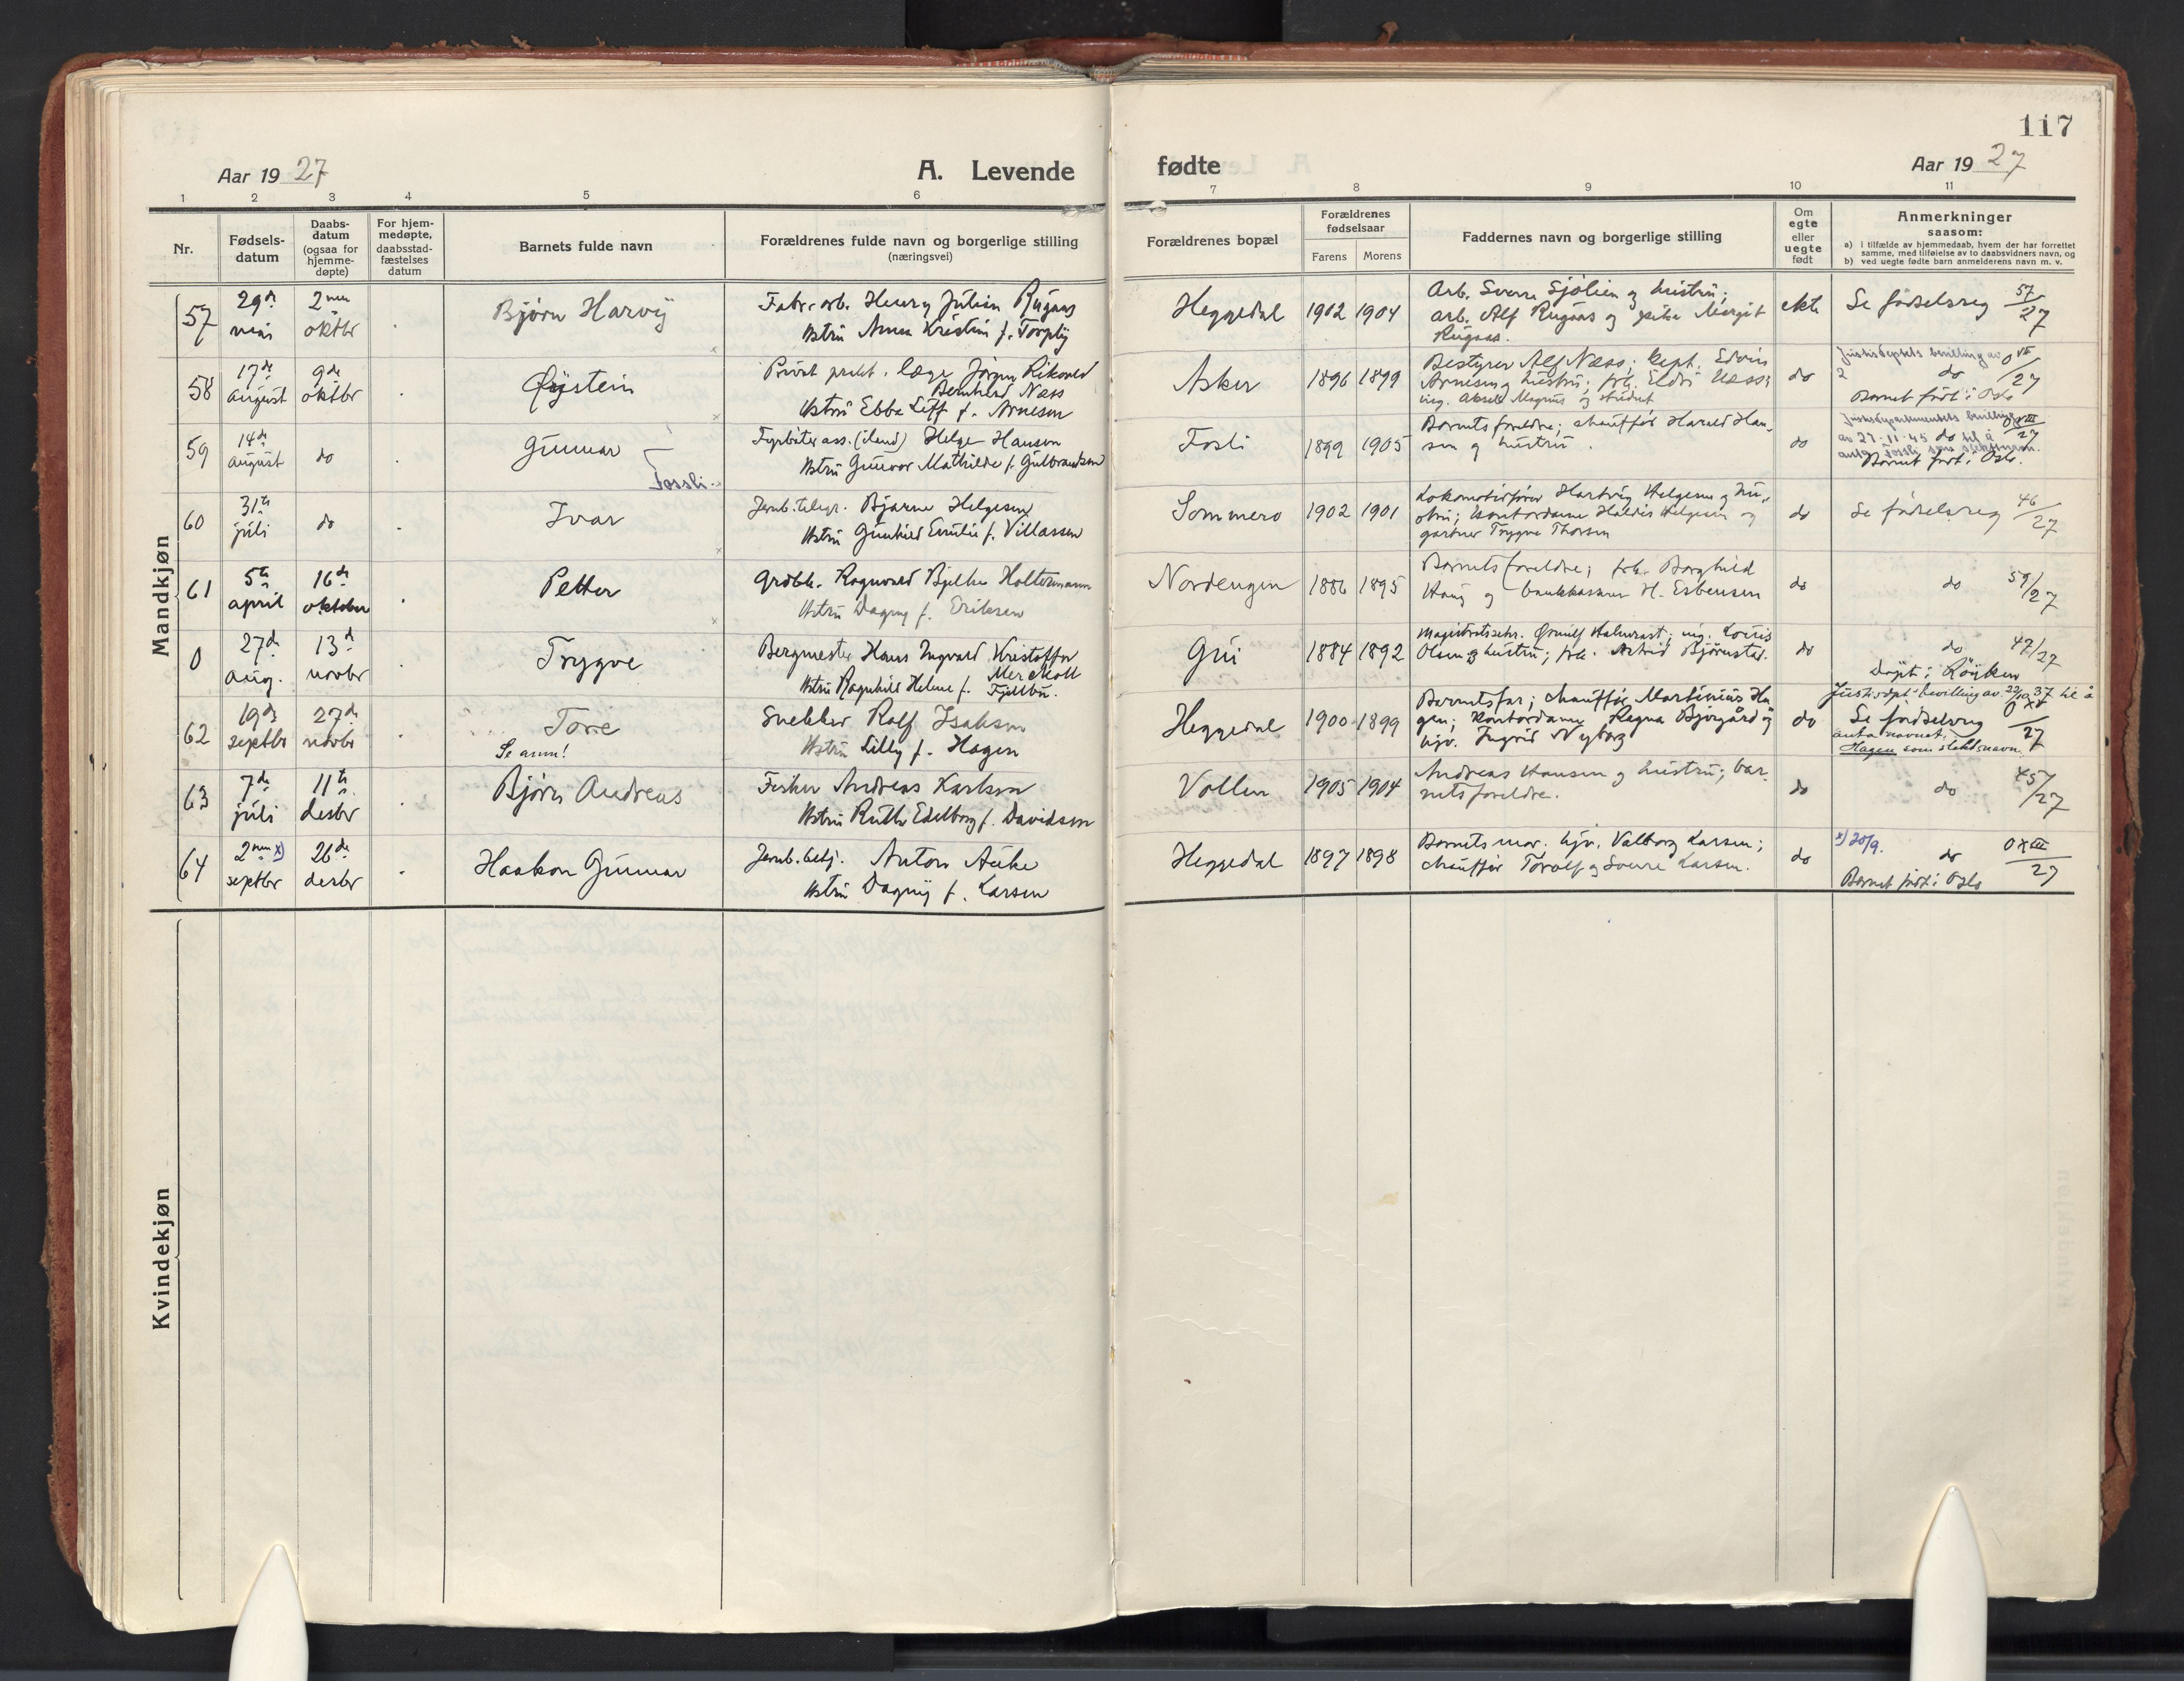 117
Aar 19 27
A. Levende
fødte
Aar 19 27
1 2 3 4 5 6 7 8 9 10 11
Nr.
Fødsels-
datum
Daabs-
datum
(ogsaa for
hjemme-
døpte)
For hjem-
medøpte,
daabsstad-
fæstelses
datum
Barnets fulde navn
Forældrenes fulde navn og borgerlige stilling
(næringsvei)
Forældrenes bopæl
Forældrenes
fødselsaar
Farens Morens
Faddernes navn og borgerlige stilling
Om
egte
eller
uegte
født
Anmerkninger
saasom:
a) i tilfælde av hjemmedaab, hvem der har forrettet
samme, med tilføielse av to daabsvidners navn, og
b) ved uegte fødte barn anmelderens navn m. v.
Mandkjøn
57
29de
mai
2nen
oktbr
Bjørn Harvÿ
Fabr.arb. Henry Julian Rugaas
Hstru Anna Kristin f.
Heggedal
1902 1904
Arb. Sverre Sjølien og hustru;
arb. Alf Rugaas og Margit
Rugaas.
ekte
Se fødselsreg 57/27
58
17de
august
9de
oktbr
Øystein
Privat prakt. læge Jørgen Rikard
Bernhard Næss
Hstru Ebba Liff f. Arnesen
Asker
1896 1899
Bestyrer Alf Næss; kapt. Edvin
Arnesen og hustru; frk. Eldri Næss;
ing. Aksel Magnus og student
do
Justisdeptets bevilling av
2 do 0 VII/27
Barnet født i Oslo
59
14de
august
do
Gunnar
Fossli
Fyrbøter ass. (iland) Helge Hansen
Hstru Gunvor Mathilde f. Gulbrandsen
Fosli
1899 1905
Barnets foreldre; chauffør Harald Han-
sen og hustru.
do
Justisdepartementets bevilling
av 27-11-45 do til å 0 VIII/27
anta Fossli som slektsnavn.
Barnet født i Oslo.
60
31te
juli
do
Ivar
Jernb.telegr. Bjarne Helgesen
Hstru Gunhild Emilie f. Villassen
Sommero
1902 1901
Lokomotivfører Hartvig Helgesen og hu-
stru; kontordame Haldis Helgesen og
gartner Trygve Thorsen
do
Se fødselsreg 46/27
61
5te
april
16de
oktober
Petter
Grdbr. Ragnvald Bjelke Holtermann
Hstru Dagny f. Eriksen
Nordengen
1886 1895
Barnets foreldre; frk. Borghild
Haug og bankkasserer H. Esbensen
do
do 59/27
0
27de
aug.
13de
novbr
Trygve
Bergmester Hans Ingvald Kristoffer
Merckoll
Hstru Ragnhild Helene f. Fjellbu.
Gui
1884 1892
Magistratssekr. Ørnulf Halvrast; ing. Louis
Olsen og hustru; frk. Astrid Bjørnstad.
do
do 47/27
Døpt i Røyken
62
19de
septbr
27de
novbr
Tore
Se anm!
Snekker Rolf Isaksen
Hstru Lilly f. Hagen
Heggedal
1900 1899
Barnets far; chauffør Martinius Ha-
gen; kontordame Ragna Bjørgård og
hjv. Ingrid Nyborg
do
Justisdpt's bevilling av 22/10 37 til å
Se fødselsreg 0 XI/27
anta navnet:
Hagen som slektsnavn.
63
7de
juli
11te
desbr
Bjørn Andreas
Fisker Andreas Karlsen
Hstru Ruth Edelborg f. Davidsen
Vollen
1905 1904
Andreas Hansen og hustru; bar-
nets foreldre.
do
do 45/27
64
2nen x)
septbr
26de
desbr
Haakon Gunnar
Jernb.betj. Anton Auke
Hstru Dagny f. Larsen
Heggedal
1897 1898
Barnets mor. hjv. Valborg Larsen;
chauffør Torolf og Sverre Larsen.
do
x) 20/9.
do 0 XIII/27
Barnet født i Oslo
Kvindekjøn